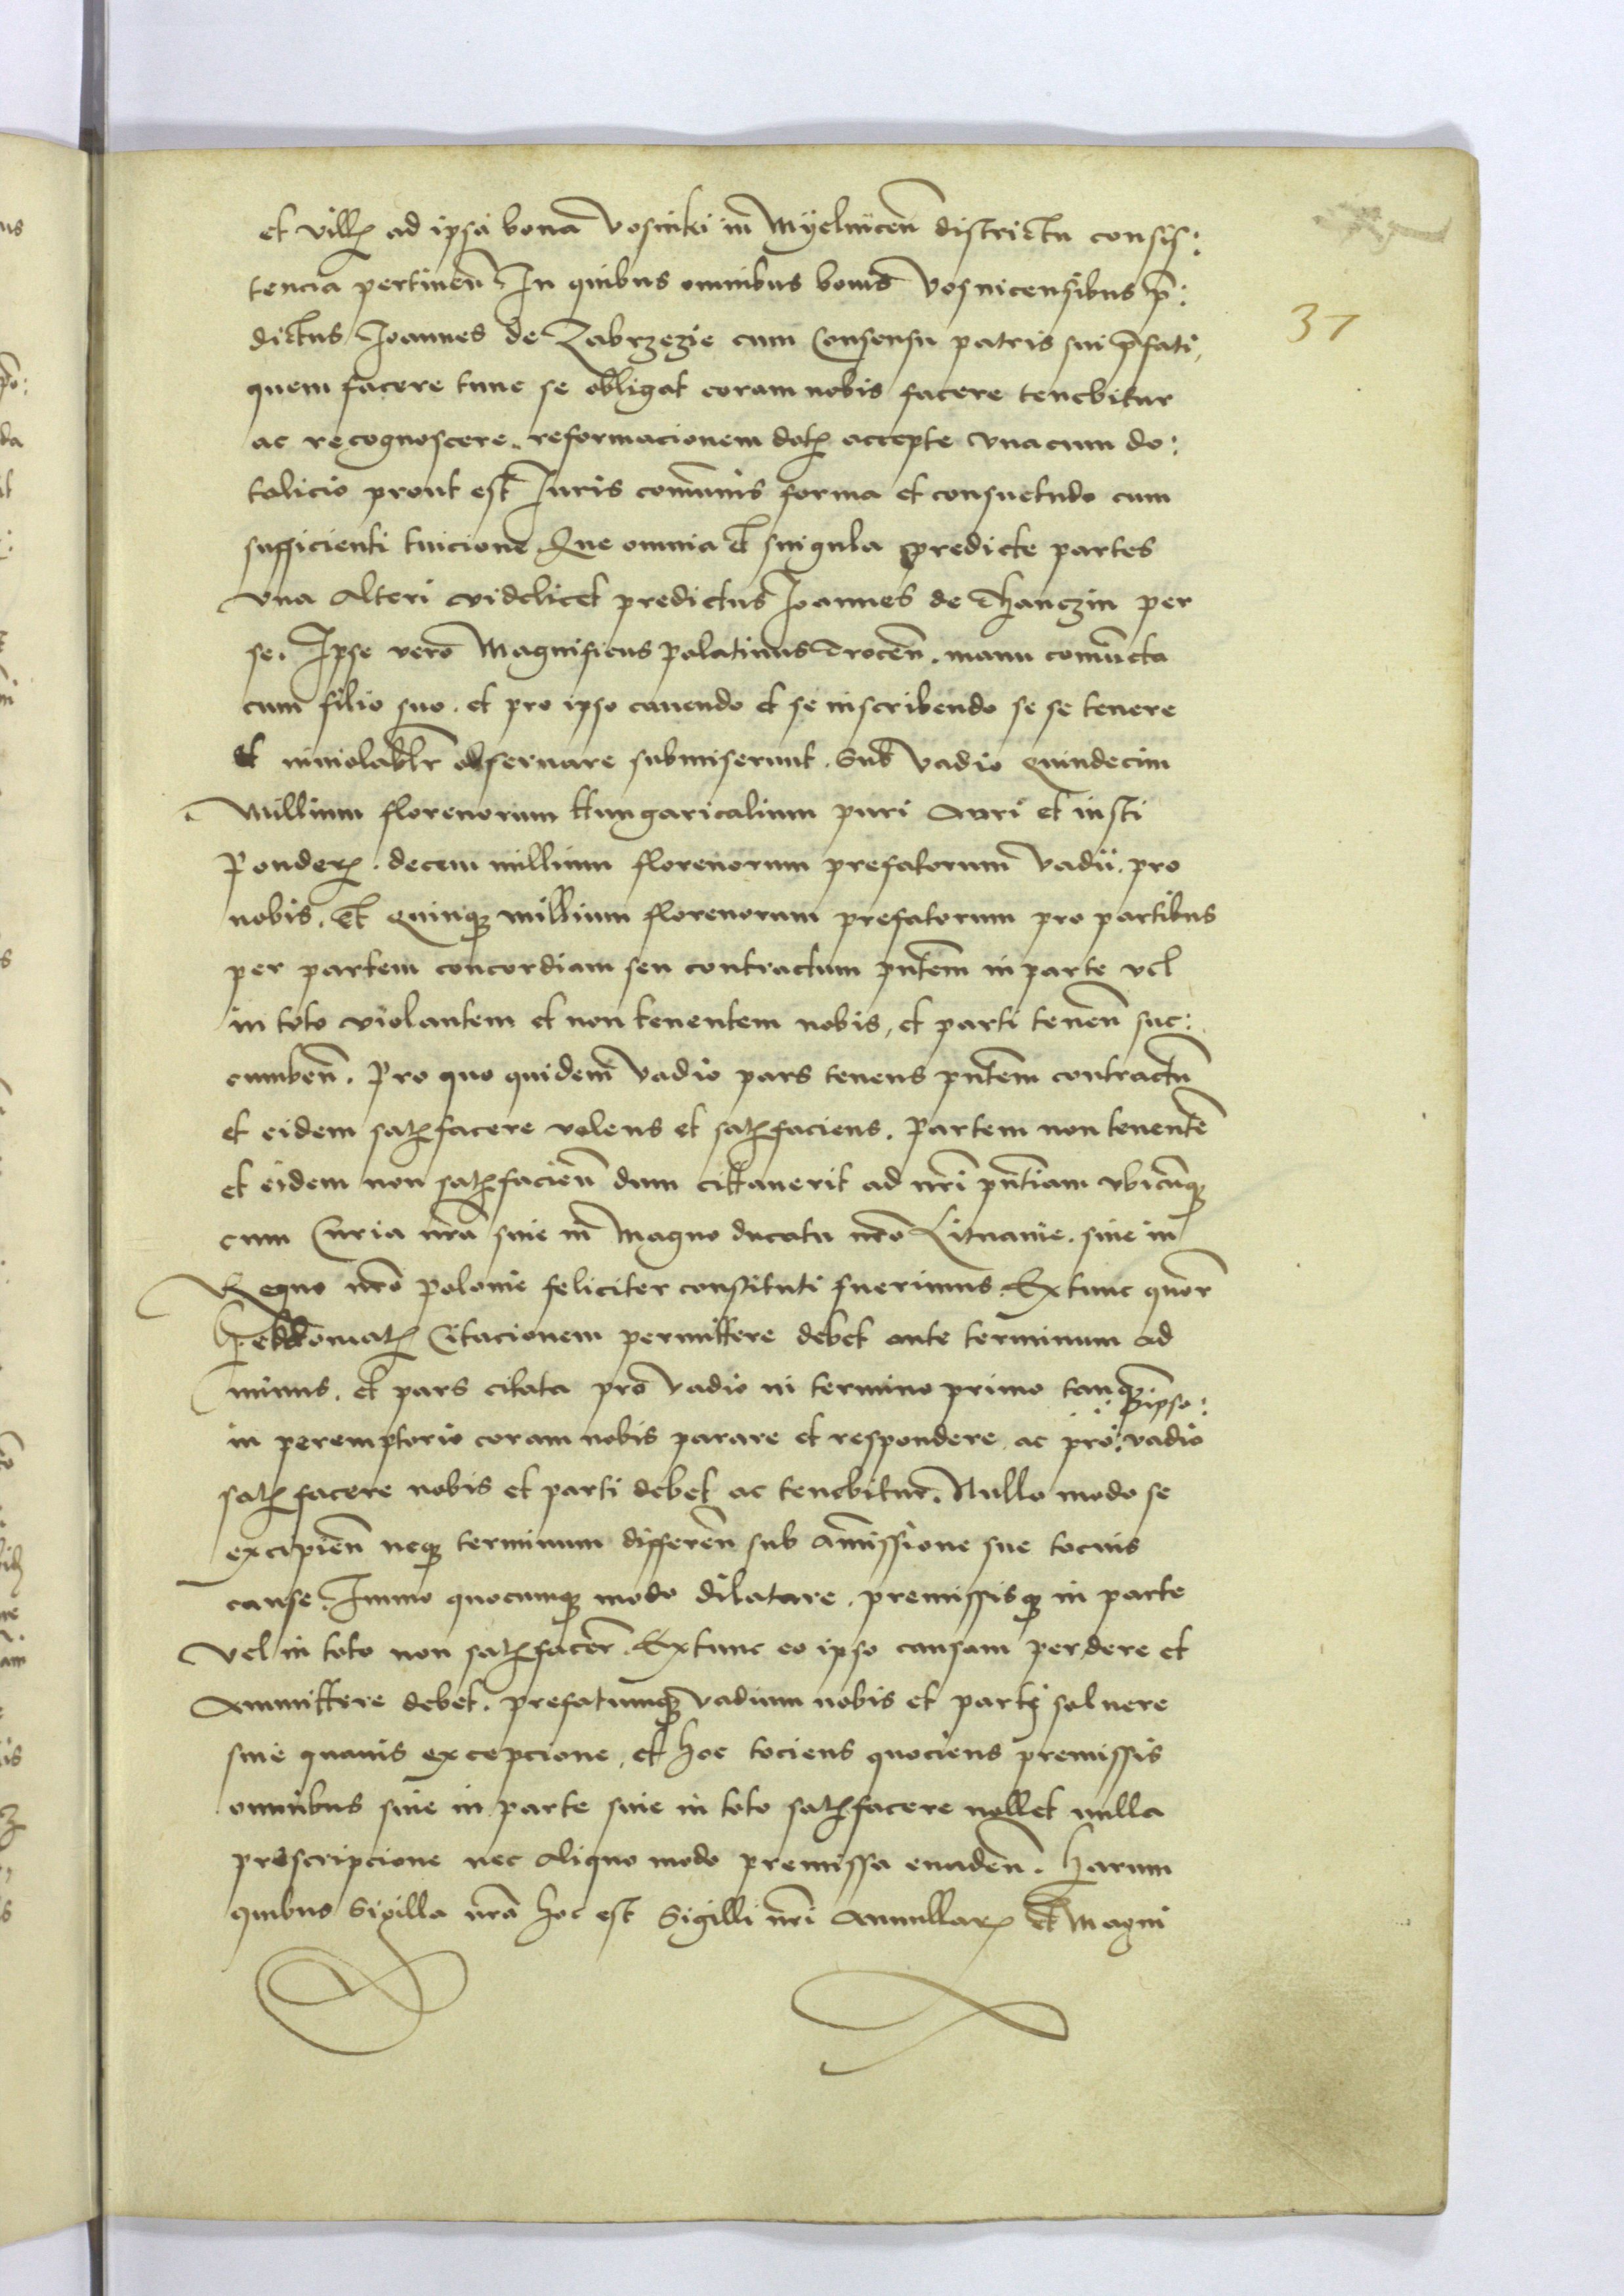 et vill[is] ad ipsa bona Vosniki in Myelnicen̄ districtu consis:
tencia pertineñ In quibus omnibus bonis Vosnicensibus p̄:
dictus Joannes de Zabrzezie cum Consensu patris sui p̄fati,
quem facere tunc se obligat coram nobis facere tenebitur
ac recognoscere. reformacionem dotꝭ accepte vnacum do:
talicio prout est Juris com̄unis forma et consuetudo cum
sufficienti tuicione. Que omnia et singula predicte partes
vna Alteri videlicet predictus Joannes de Thanczin per
se. Ipse vero Magnificus palatinus Trocen̄. manu coniuncta
cum filio suo. et pro ipso cauendo et se inscribendo se se tenere
et inuiolablr̄ obseruare submiserunt. Sub vadio Quindecim
Millium florenorum Hungaricalium puri Auri et iusti
Ponderꝭ. decem millium florenorum prefatorum vadii. pro
nobis. Et Quinqꝫ millium florenorum prefatorum pro partibus
per partem concordiam seu contractum pn̄tem in parte vel
in toto violantem et non tenentem nobis, et parti tenen̄ suc:
cumben̄. Pro quo quidem vadio pars tenens pn̄tem contractū
et eidem satꝭfacere volens et satꝭfaciens. Partem non tenentē
et eidem non satꝭfacien̄ dum cittauerit ad nr̄i pn̄tiam vbicunqꝫ
cum Curia nr̄a siue in Magno ducatu nr̄o Lituanie. siue in
Regno nr̄o Polonie feliciter constituti fuerimus. Extunc quor
hebdomatꝭ Citacionem permittere debet ante terminum ad
minus. et pars citata pro vadio in termino primo tanqꝫ
:ipso:
in peremptorio coram nobis parare et respondere ac pro: vadio
satꝭfacere nobis et parti debet ac tenebitur. Nullo modo se
excipien̄ neqꝫ terminum differen̄ sub am̄issione sue tocius
cause. Immo quocumqꝫ modo dilatare. premissisqꝫ in parte
vel in toto non satꝭfacer̄. Extunc eo ipso causam perdere et
Ammittere debet. prefatumqꝫ vadium nobis et parti soluere
sine quauis excepcione, et hoc tociens quociens premissis
omnibus siue in parte siue in toto satꝭfacere nollet nulla
prescripcione nec Aliquo modo premissa euaden̄. Harum
quibus Sigilla nr̄a hoc est Sigilli nr̄i Annullarꝭ et Magni
37